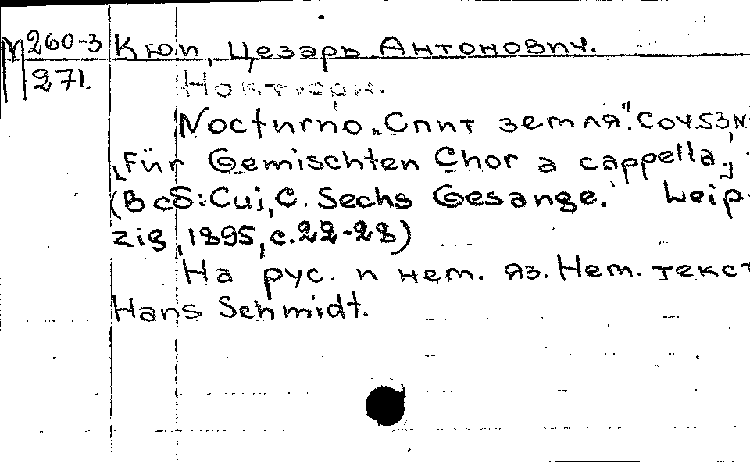 М 260-3 Кюи, Цезарь Антонович.
271. Ноктюрн.
Nocturno „Спит земля". Соч.53, N
„Für Gemischten Chor a cappella„
(В сб: Cui, C. Sechs Gesange. Leip-
zig, 1895, с.22-28)
На рус. и нем. яз. Нем. текст
Hans Schmidt.